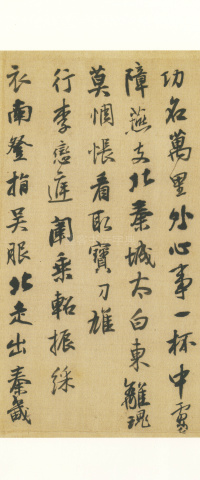 功名萬里外心事一杯中虜
障燕支北秦城太白東離魂
莫惆悵看取寶刀雄
行李戀庭闈乘軺振綵
衣南登指吳服北走出秦畿